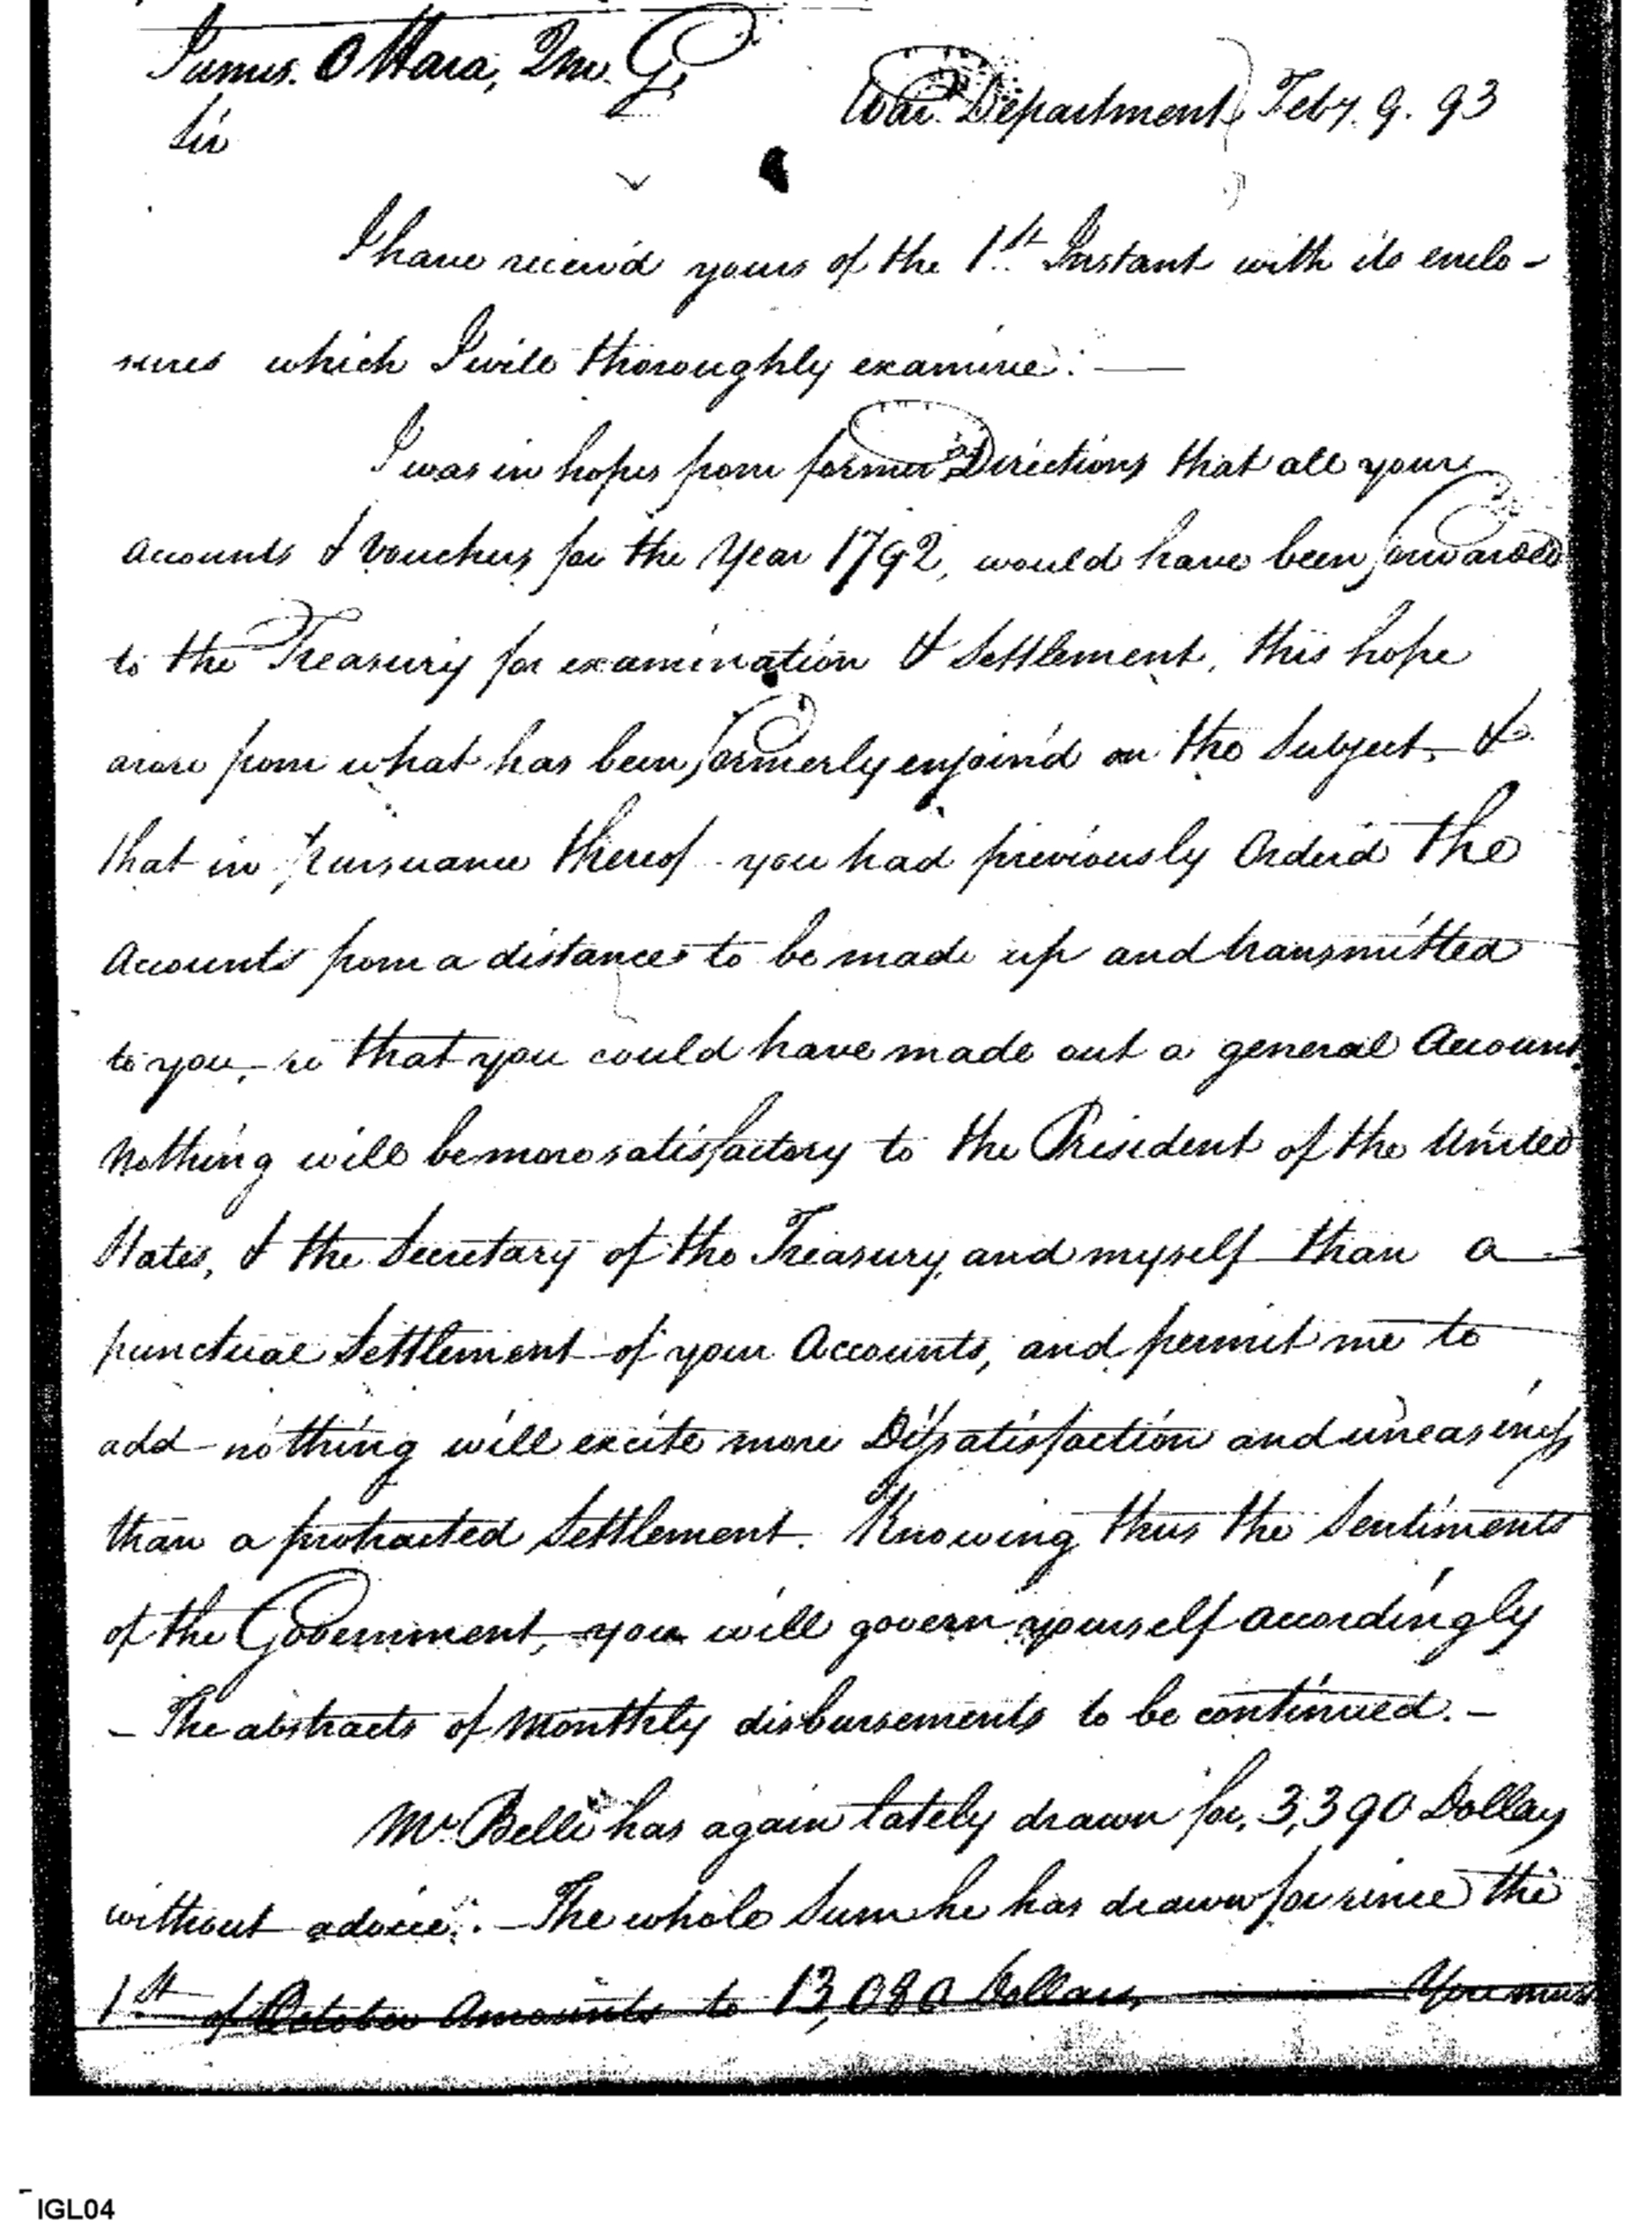 James. O Hara, Qm. G.
War Department Feby. 9. 93
Sir
I have receiv'd yours of the 1st Instant with its enclo-
sures which I will thoroughly examine. —
I was in hopes from former Directions that all your
accounts & Vouchers for the Year 1792, would have been forwarded
to the Treasury for examination & Settlement, this hope
arose from what has been formerly enjoin'd on the Subject, &
that in pursuance thereof you had previously Order'd the
Accounts from a distance to be made up and transmitted
to you, so that you could have made out a general Account
Nothing will be more satisfactory to the President of the United
States, & the Secretary of the Treasury, and myself than a
punctual Settlement of your Accounts, and permit me to
add nothing will excite more Dissatisfaction and uneasiness
than a protracted Settlement. Knowing thus the Sentiments
of the Government, you will govern yourself accordingly
— The abstracts of Monthly disbursements to be continued. —
Mr. Belli has again lately drawn for, 3,390 Dollars
without advice. — The whole Sum he has drawn for since the
1st of October Amounts to 13,080 Dollars, — You must
IGL04